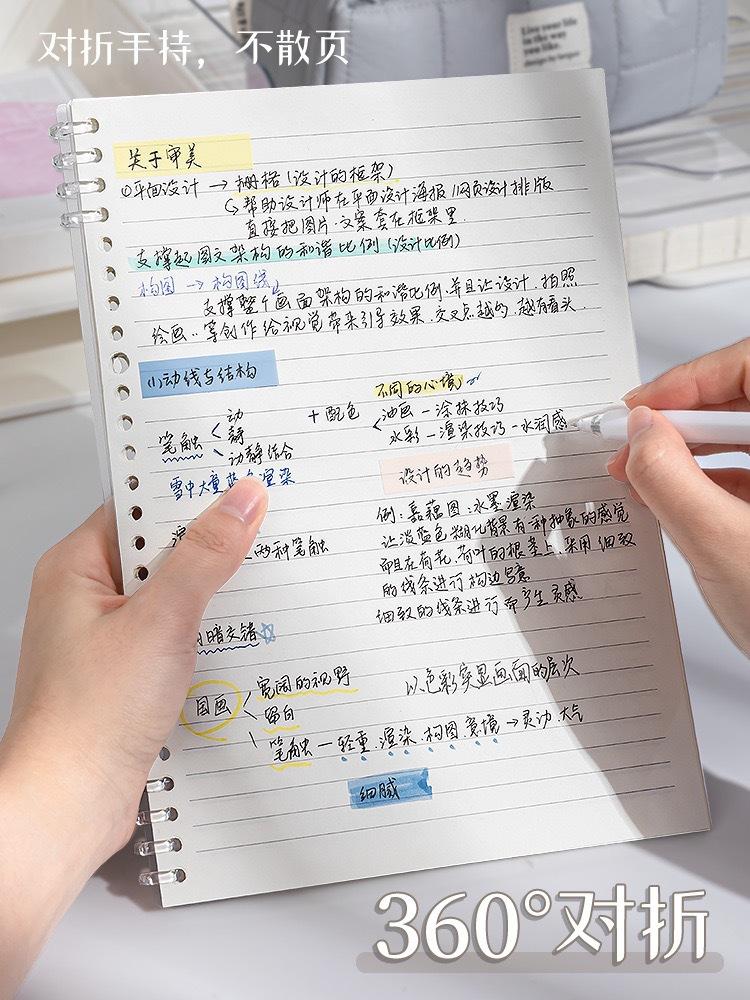 对折手持，不散页
Live your life
in the way
you like.
关于审美
①平面设计 → 栅格(设计的框架)
↳帮助设计师在平面设计海报/网页设计排版
直接把图片.文案套在框架里.
支撑起图文架构的和谐比例(设计比例)
构图 → 构图线
支撑整个画面架构的和谐比例.并且让设计.拍照
绘画..等创作给视觉带来引导效果.交叉点越多,越有看头.
(1)动线与结构
不同的心境
笔触 动
静
动静结合
+配色
油画—涂抹技巧
水彩—渲染技巧—水润感
设计的趋势
雪中大重蓝色渲染
例:嘉藕图:水墨渲染
让淡蓝色糊化背景有一种抽象的感觉
而且在荷花.荷叶的根茎上.采用细致
的线条进行构边写意
细致的线条进行而产生灵感
两种笔触
暗交错
国画 宽阔的视野
留白
笔触—轻重.渲染.构图.意境→灵动.大气
以色彩突显画面的层次
细腻
360°对折